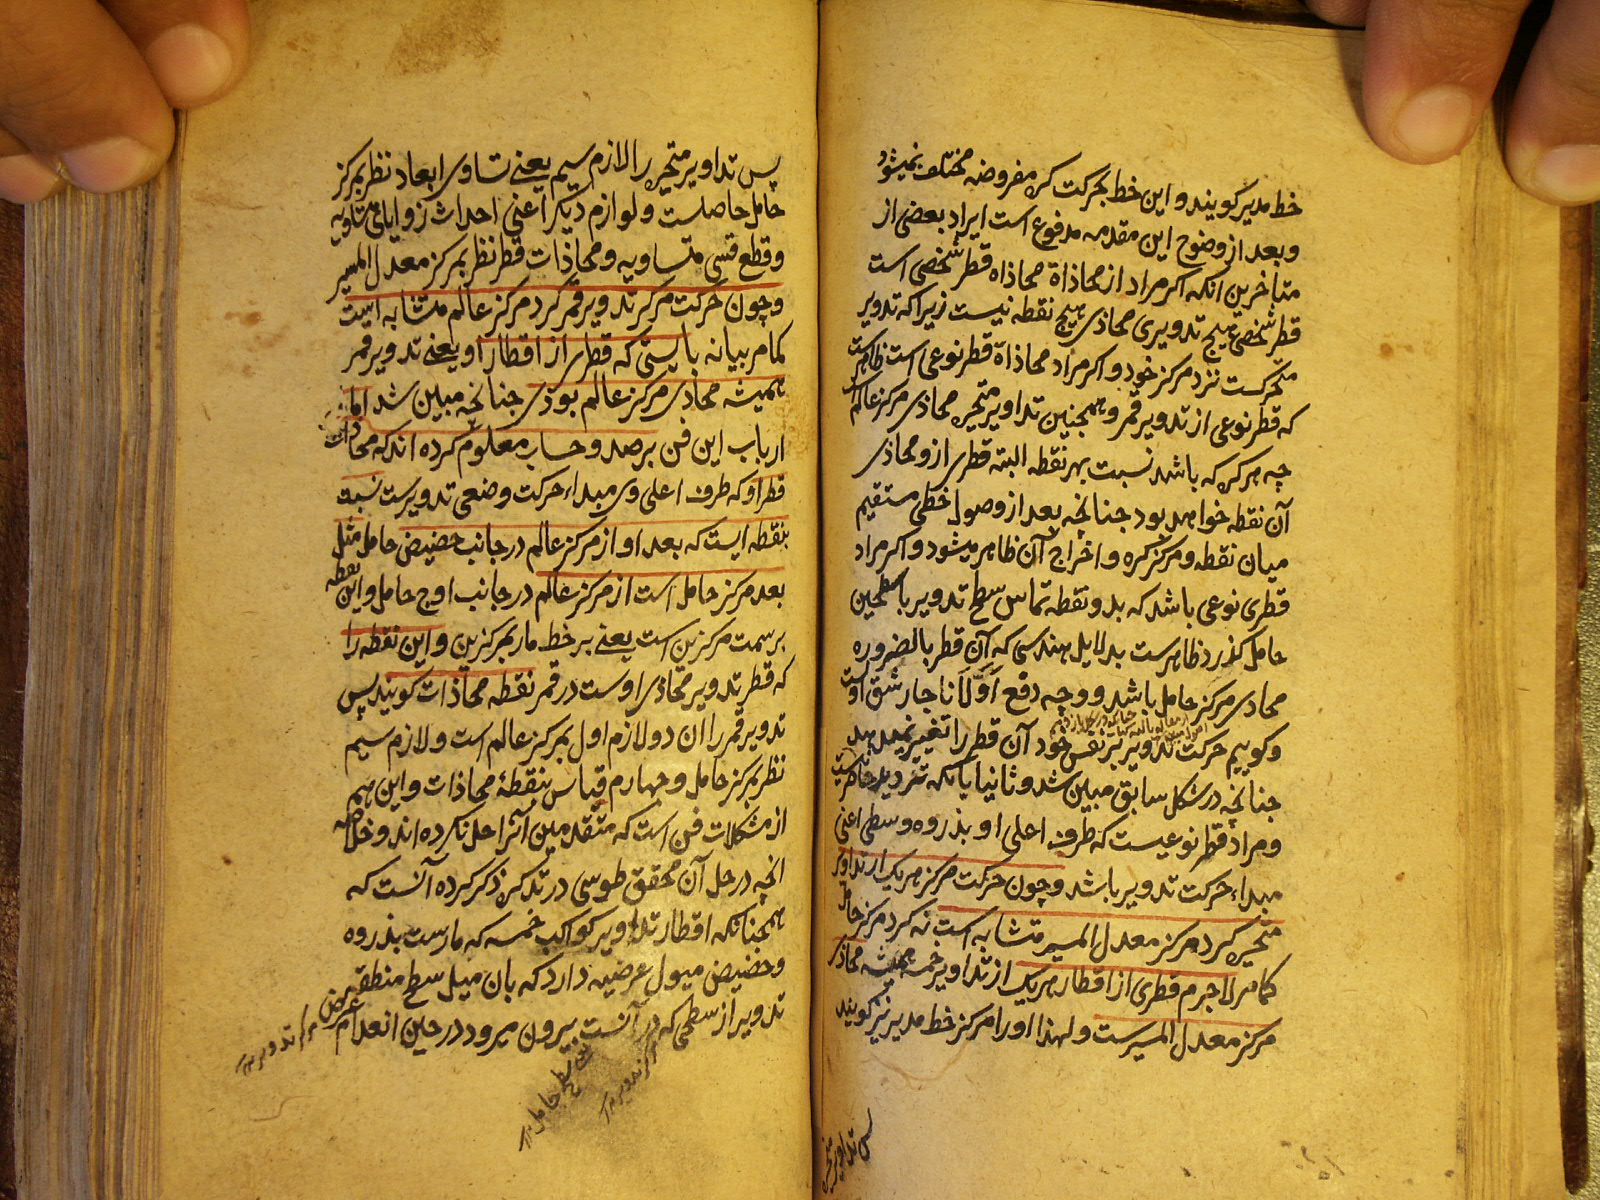 خط مدیر کویند و این خط بحرکت کره مفروضه مختلف نمیشود
و بعد از وضوح این مقدمه مدفوع است ایراد بعضی از
متاخرین انکه اکر مراد از محاذاة محاذاه قطر شخصی است
قطر شخصی هیچ تدویری محاذی هیچ نقطه نیست زیرا که تدویر
متحرکست نزد مرکز خود و اکر مراد محاذاة قطر نوعی است ظاهرست
که قطر نوعی از تدویر قمر و همچنین تداویر متحیره محاذی مرکز عالم
چه هر کره که باشد نسبت بهر نقطه البته قطری از و محاذی
آن نقطه خواهد بود جنانچه بعد از وصول خطی مستقیم
میان نقطه و مرکز کره و اخراج آن ظاهر میشود و اکر مراد
قطری نوعی باشد که بدو نقطه تماس سطح تدویر با سطحین
حامل کذرد ظاهرست بدلایل هندسی که آن قطر بالضروره
محاذی مرکز حامل باشد و وجه دفع اولا انا جار شق اوست
و کوییم حرکت تدویر بر نفس خود آن قطر را تغییر نمیدهد
جنانچه در شکل سابق مبین شد و ثانیا بانکه تردید حاضر نیست
و مراد قطر نوعیست که طرف اعلی او بذروه وسطی اعنی
مبداء حرکت تدویر باشد و چون حرکت مرکز هریک از تداویر
متحیره کرد مرکز معدل المسیر متشابه است نه کرد مرکز حامل
کما مر لاجرم قطری از اقطار هریک از تداویر خمسه همیشه محاذی
مرکز معدل المسیرست و لهذا او را مرکز خط مدیر نیز کویند
پس تداویر متحیره
پس تداویر متحیره را لازم سیم یعنی تساوی ابعاد نظر بمرکز
حامل حاصلست و لوازم دیکر اعنی احداث زوایای متساویه
و قطع قسی متساویه و محاذات قطر نظر بمرکز معدل المسیر
و چون حرکت مرکز تدویر قمر کرد مرکز عالم متشابه است
کما مر بیانه بایستی که قطری از اقطار او یعنی تدویر قمر
همیشه محاذی مرکز عالم بودی جنانچه مبین شد اما
ارباب این فن برصد و حساب معلوم کرده اند که محاذات
قطر او که طرف اعلی وی مبداء حرکت وضعی تدویرست نسبت
بنقطه ایست که بعد او از مرکز عالم در جانب حضیض حامل مثل
بعد مرکز حامل است از مرکز عالم در جانب اوج حامل و این نقطه
بر سمت مرکزین است یعنی بر خط مار بمرکزین و این نقطه را
که قطر تدویر محاذی اوست در قمر نقطه محاذات کویند پس
تدویر قمر را ان دو لازم اول بمرکز عالم است و لازم سیم
نظر بمرکز حامل و چهارم قیاس بنقطهٔ محاذات و این هم
از مشکلات فن است که متقدمین آنرا حل ناکرده اند و خلاصه
انچه در حل آن محقق طوسی در تذکره ذکر کرده آنست که
همچنانکه اقطار تداویر کواکب خمسه که مارست بذروه
و حضیض میول عرضیه دارد که بان میل سطح منطقه
تدویر از سطحی که در آنست بیرون میرود در حین انعدام عرض
مرکز تدویر
سطح حامل
مرکز تدویر